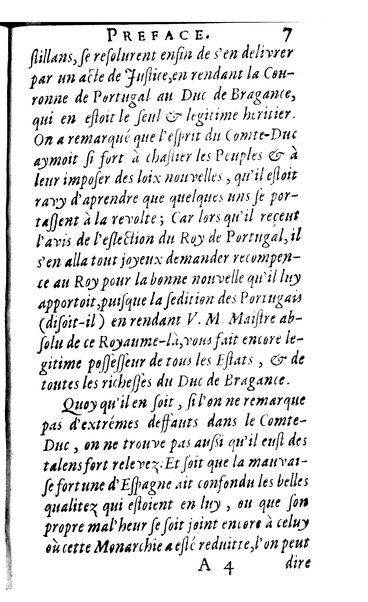 PREFACE. 7
ſtillans, ſe reſolurent enfin de s'en delivrer
par un acte de Juſtice, en rendant la Cou-
ronne de Portugal au Duc de Bragance,
qui en eſtoit le ſeul & legitime heritier.
On a remarqué que l'eſprit du Comte-Duc
aymoit ſi fort à chaſtier les Peuples & à
leur impoſer des loix nouvelles, qu'il eſtoit
ravy d'aprendre que quelques uns ſe por-
taſſent à la revolte; Car lors qu'il reçeut
l'avis de l'eſlection du Roy de Portugal, il
s'en alla tout joyeux demander recompen-
ce au Roy pour la bonne nouvelle qu'il luy
apportoit, puiſque la ſedition des Portugais
(diſoit-il) en rendant V. M. Maiſtre ab-
ſolu de ce Royaume-là, vous fait encore le-
gitime poſſeſſeur de tous les Eſtats, & de
toutes les richeſſes du Duc de Bragance.
Quoy qu'il en ſoit, ſi l'on ne remarque
pas d'extrémes deffauts dans le Comte-
Duc, on ne trouve pas auſſi qu'il euſt des
talens fort relevez. Et ſoit que la mauvai-
ſe fortune d'Eſpagne ait confondu les belles
qualitez qui eſtoient en luy, ou que ſon
propre mal'heur ſe ſoit joint encore à celuy
où cette Monarchie a eſté reduitte, l'on peut
A 4 dire